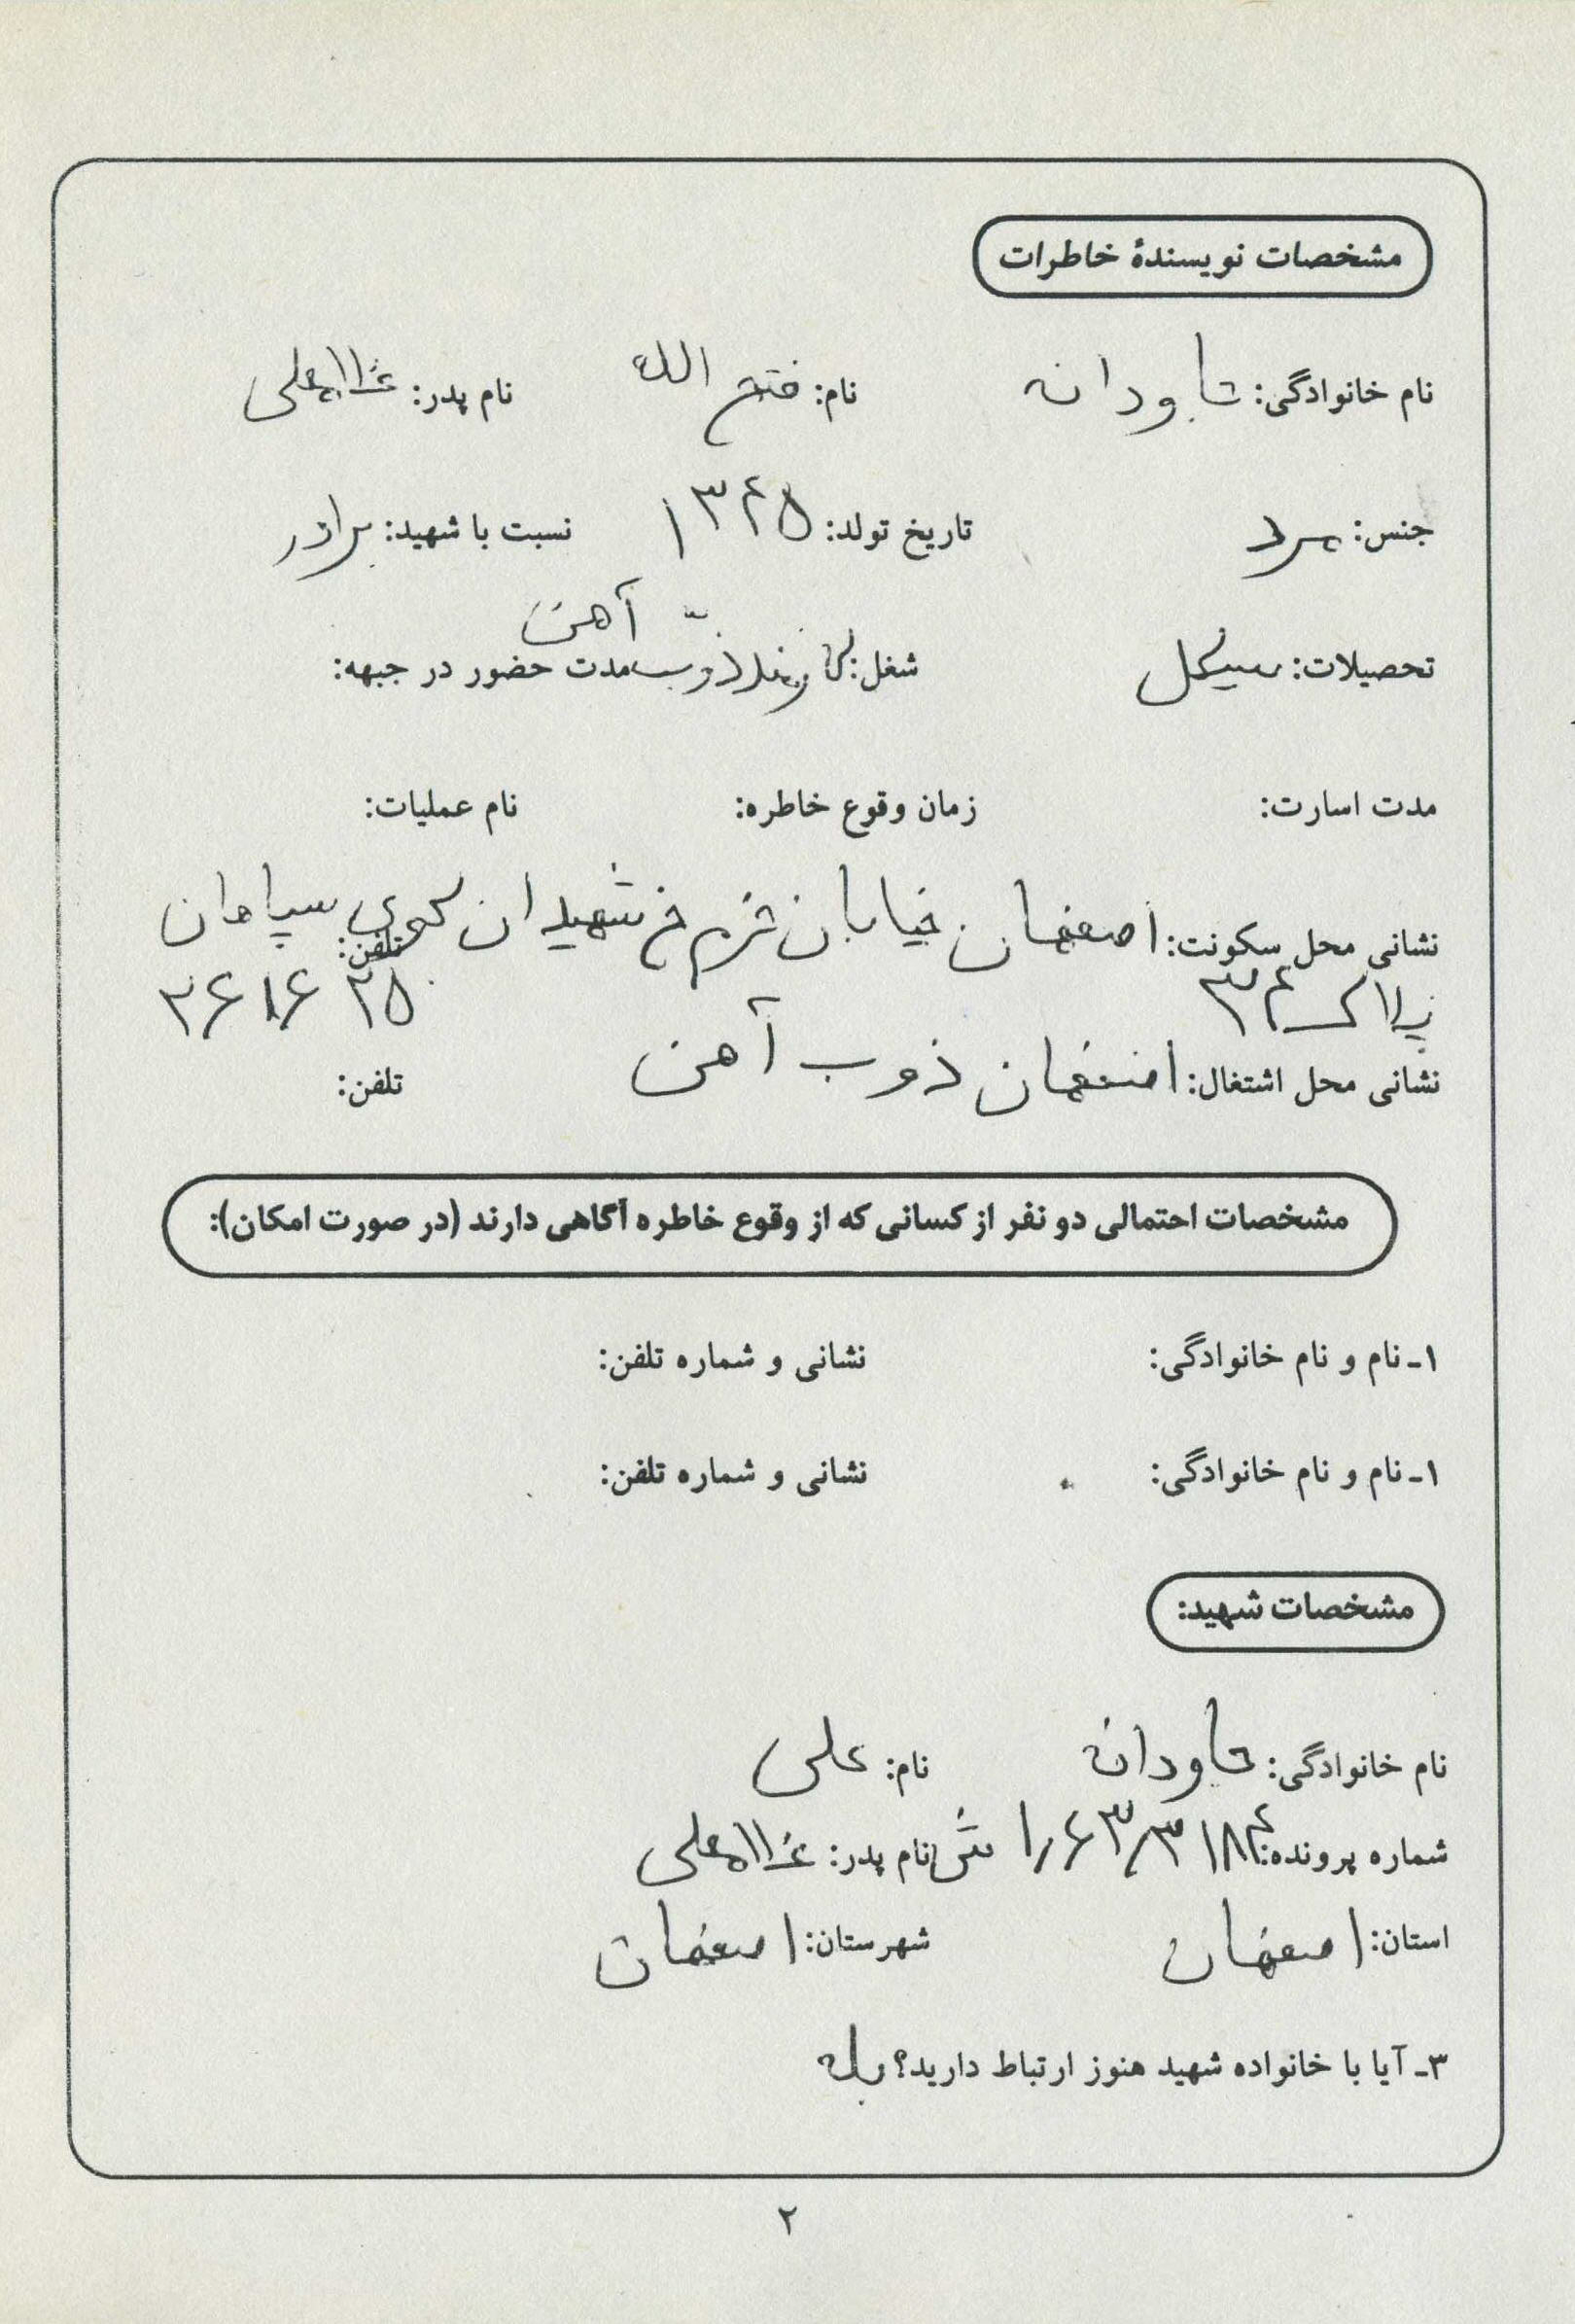 مشخصات نویسندهٔ خاطرات
نام خانوادگی: جاودانه نام: فتح الله نام پدر: غلامعلی
جنس: مرد تاریخ تولد: ۱۳۴۵ نسبت با شهید: برادر
تحصیلات: سیکل شغل: کارمند ذوب آهن مدت حضور در جبهه:
مدت اسارت: زمان وقوع خاطره: نام عملیات:
نشانی محل سکونت: اصفهان خیابان خ شهیدان کوی سپاهان تلفن:
پلاک ۳۴ ۲۶۱۶۲۵
نشانی محل اشتغال: اصفهان ذوب آهن تلفن:
مشخصات احتمالی دو نفر از کسانی که از وقوع خاطره آگاهی دارند (در صورت امکان):
۱ـ نام و نام خانوادگی: نشانی و شماره تلفن:
۱ـ نام و نام خانوادگی: نشانی و شماره تلفن:
مشخصات شهید:
نام خانوادگی: جاودانه نام: علی
شماره پرونده: نام پدر: غلامعلی
استان: اصفهان شهرستان: اصفهان
۳ـ آیا با خانواده شهید هنوز ارتباط دارید؟ بله
۲